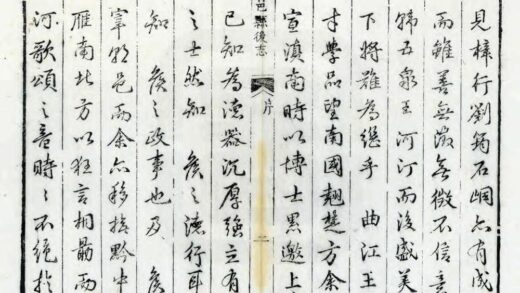 見梓行劉筠石峒亦有成
而雖善無徵無徵不信喜
歸五泉王河汀而後盛美
下將難為繼乎曲江王
才學品望南國翹楚方余
宣滇南時以博士票邀上
邑縣後志
序
二
已知為渡器沉厚強立有
之士然知侯之德行耳
知侯之政事也及侯
宰邑而余亦移撫黔中
雁南北方以狂言相勗而
河歌頌之音時時不絕於